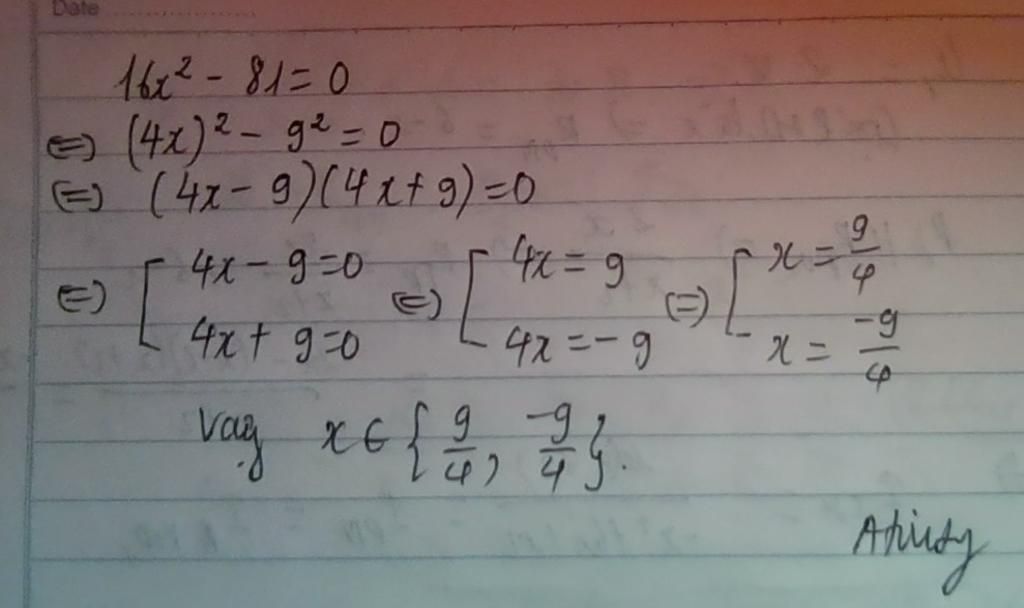 Date
16x² - 81 = 0
⇔ (4x)² - 9² = 0
⇔ (4x - 9)(4x + 9) = 0
⇔ [ 4x - 9 = 0 ; 4x + 9 = 0 ⇔ [ 4x = 9 ; 4x = -9 ⇔ [ x = 9/4 ; x = -9/4
Vậy x ∈ {9/4, -9/4}.